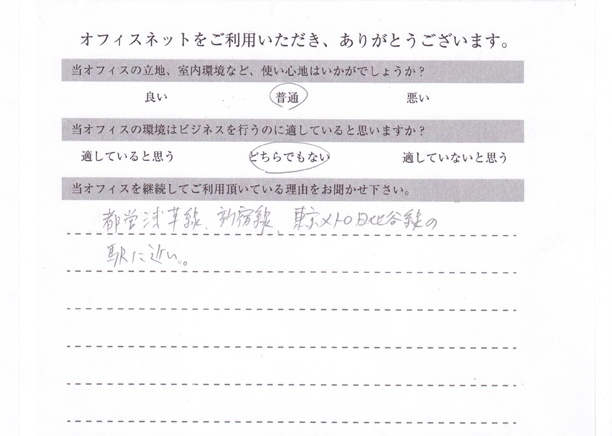 オフィスネットをご利用いただき、ありがとうございます。
当オフィスの立地、室内環境など、使い心地はいかがでしょうか？
良い 普通 悪い
当オフィスの環境はビジネスを行うのに適していると思いますか？
適していると思う どちらでもない 適していないと思う
当オフィスを継続してご利用頂いている理由をお聞かせ下さい。
都営浅草線、新宿線、東京メトロ日比谷線の
駅に近い。